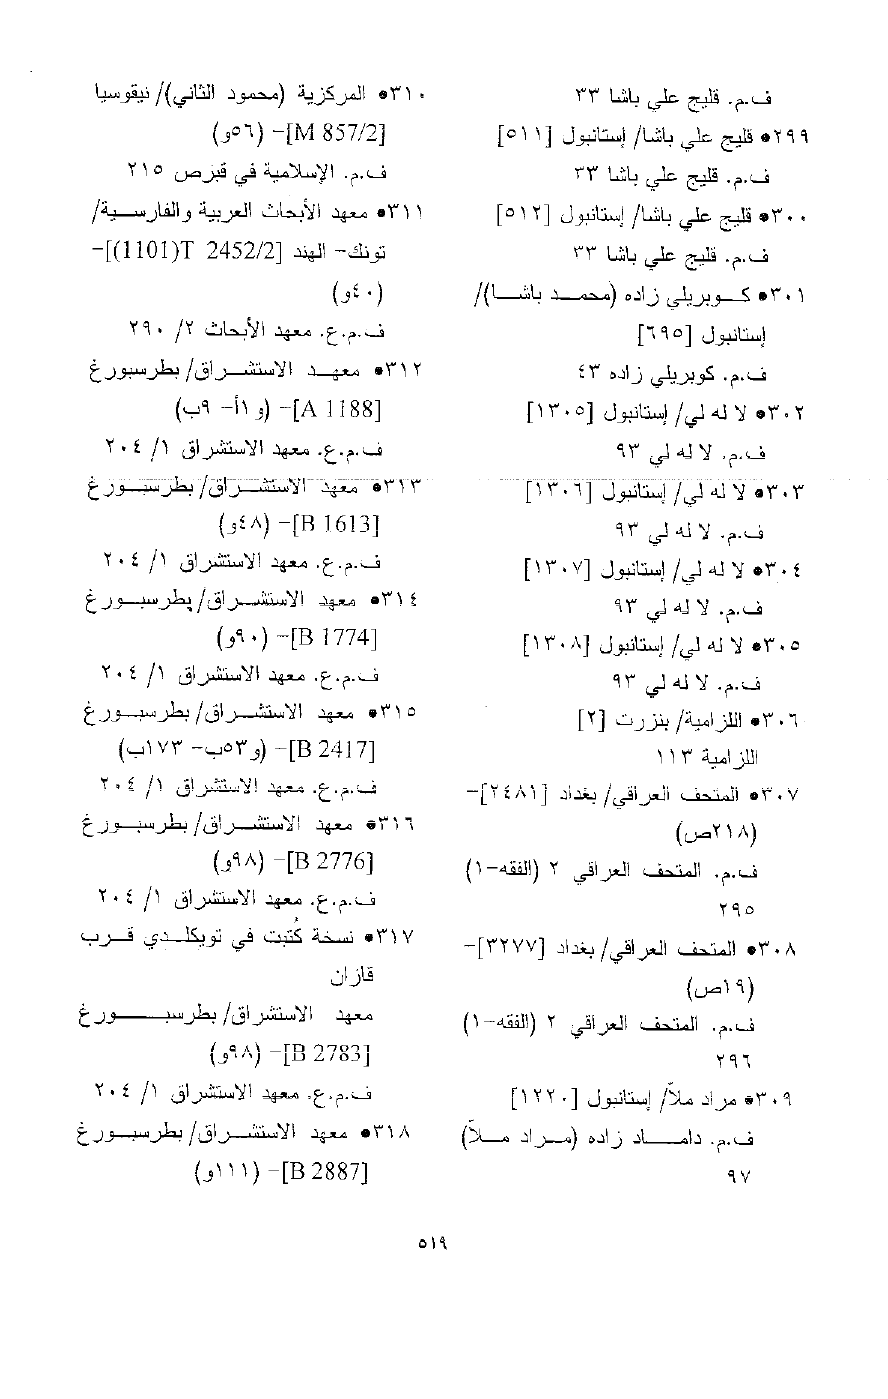 ف.م. قليج علي باشا ٣٣
٢٩٩* قليج علي باشا/ إستانبول [٥١١]
ف.م. قليج علي باشا ٣٣
٣٠٠* قليج علي باشا/ إستانبول [٥١٢]
ف.م. قليج علي باشا ٣٣
٣٠١* كـوبريلي زاده (محمـد باشـا)/
إستانبول [٦٩٥]
ف.م. كوبريلي زاده ٤٣
٣٠٢* لا له لي/ إستانبول [١٣٠٥]
ف.م. لا له لي ٩٣
٣٠٣* لا له لي/ إستانبول [١٣٠٦]
ف.م. لا له لي ٩٣
٣٠٤* لا له لي/ إستانبول [١٣٠٧]
ف.م. لا له لي ٩٣
٣٠٥* لا له لي/ إستانبول [١٣٠٨]
ف.م. لا له لي ٩٣
٣٠٦* اللزامية/ بنزرت [٢]
اللزامية ١١٣
٣٠٧* المتحف العراقي/ بغداد [٢٤٨١]-
(٢١٨ص)
ف.م. المتحف العراقي ٢ (الفقه-١)
٢٩٥
٣٠٨* المتحف العراقي/ بغداد [٣٢٧٧]-
(١٩ص)
ف.م. المتحف العراقي ٢ (الفقه-١)
٢٩٦
٣٠٩* مراد ملاّ/ إستانبول [١٢٢٠]
ف.م. دامـاد زاده (مـراد مـلاّ)
٩٧
٣١٠* المركزية (محمود الثاني)/ نيقوسيا
[M 857/2]- (٥٦و)
ف.م. الإسلامية في قبرص ٢١٥
٣١١* معهد الأبحاث العربية والفارسـية/
تونك- الهند [T 2452/2(1101)]-
(٤٠و)
ف.م.ع. معهد الأبحاث ٢/ ٢٩٠
٣١٢* معهـد الاستشـراق/ بطرسبورغ
[A 1188]- (و١أ- ٩ب)
ف.م.ع. معهد الاستشراق ١/ ٢٠٤
٣١٣* معهد الاستشـراق/ بطرسبـورغ
[B 1613]- (٤٨و)
ف.م.ع. معهد الاستشراق ١/ ٢٠٤
٣١٤* معهد الاستشـراق/ بطرسبـورغ
[B 1774]- (٩٠و)
ف.م.ع. معهد الاستشراق ١/ ٢٠٤
٣١٥* معهد الاستشـراق/ بطرسبـورغ
[B 2417]- (و٥٣ب- ١٧٣ب)
ف.م.ع. معهد الاستشراق ١/ ٢٠٤
٣١٦* معهد الاستشـراق/ بطرسبـورغ
[B 2776]- (٩٨و)
ف.م.ع. معهد الاستشراق ١/ ٢٠٤
٣١٧* نسخة كُتبت في تويكلـدي قـرب
قازان
معهد الاستشراق/ بطرسبـورغ
[B 2783]- (٩٨و)
ف.م.ع. معهد الاستشراق ١/ ٢٠٤
٣١٨* معهد الاستشـراق/ بطرسبـورغ
[B 2887]- (١١١و)
٥١٩